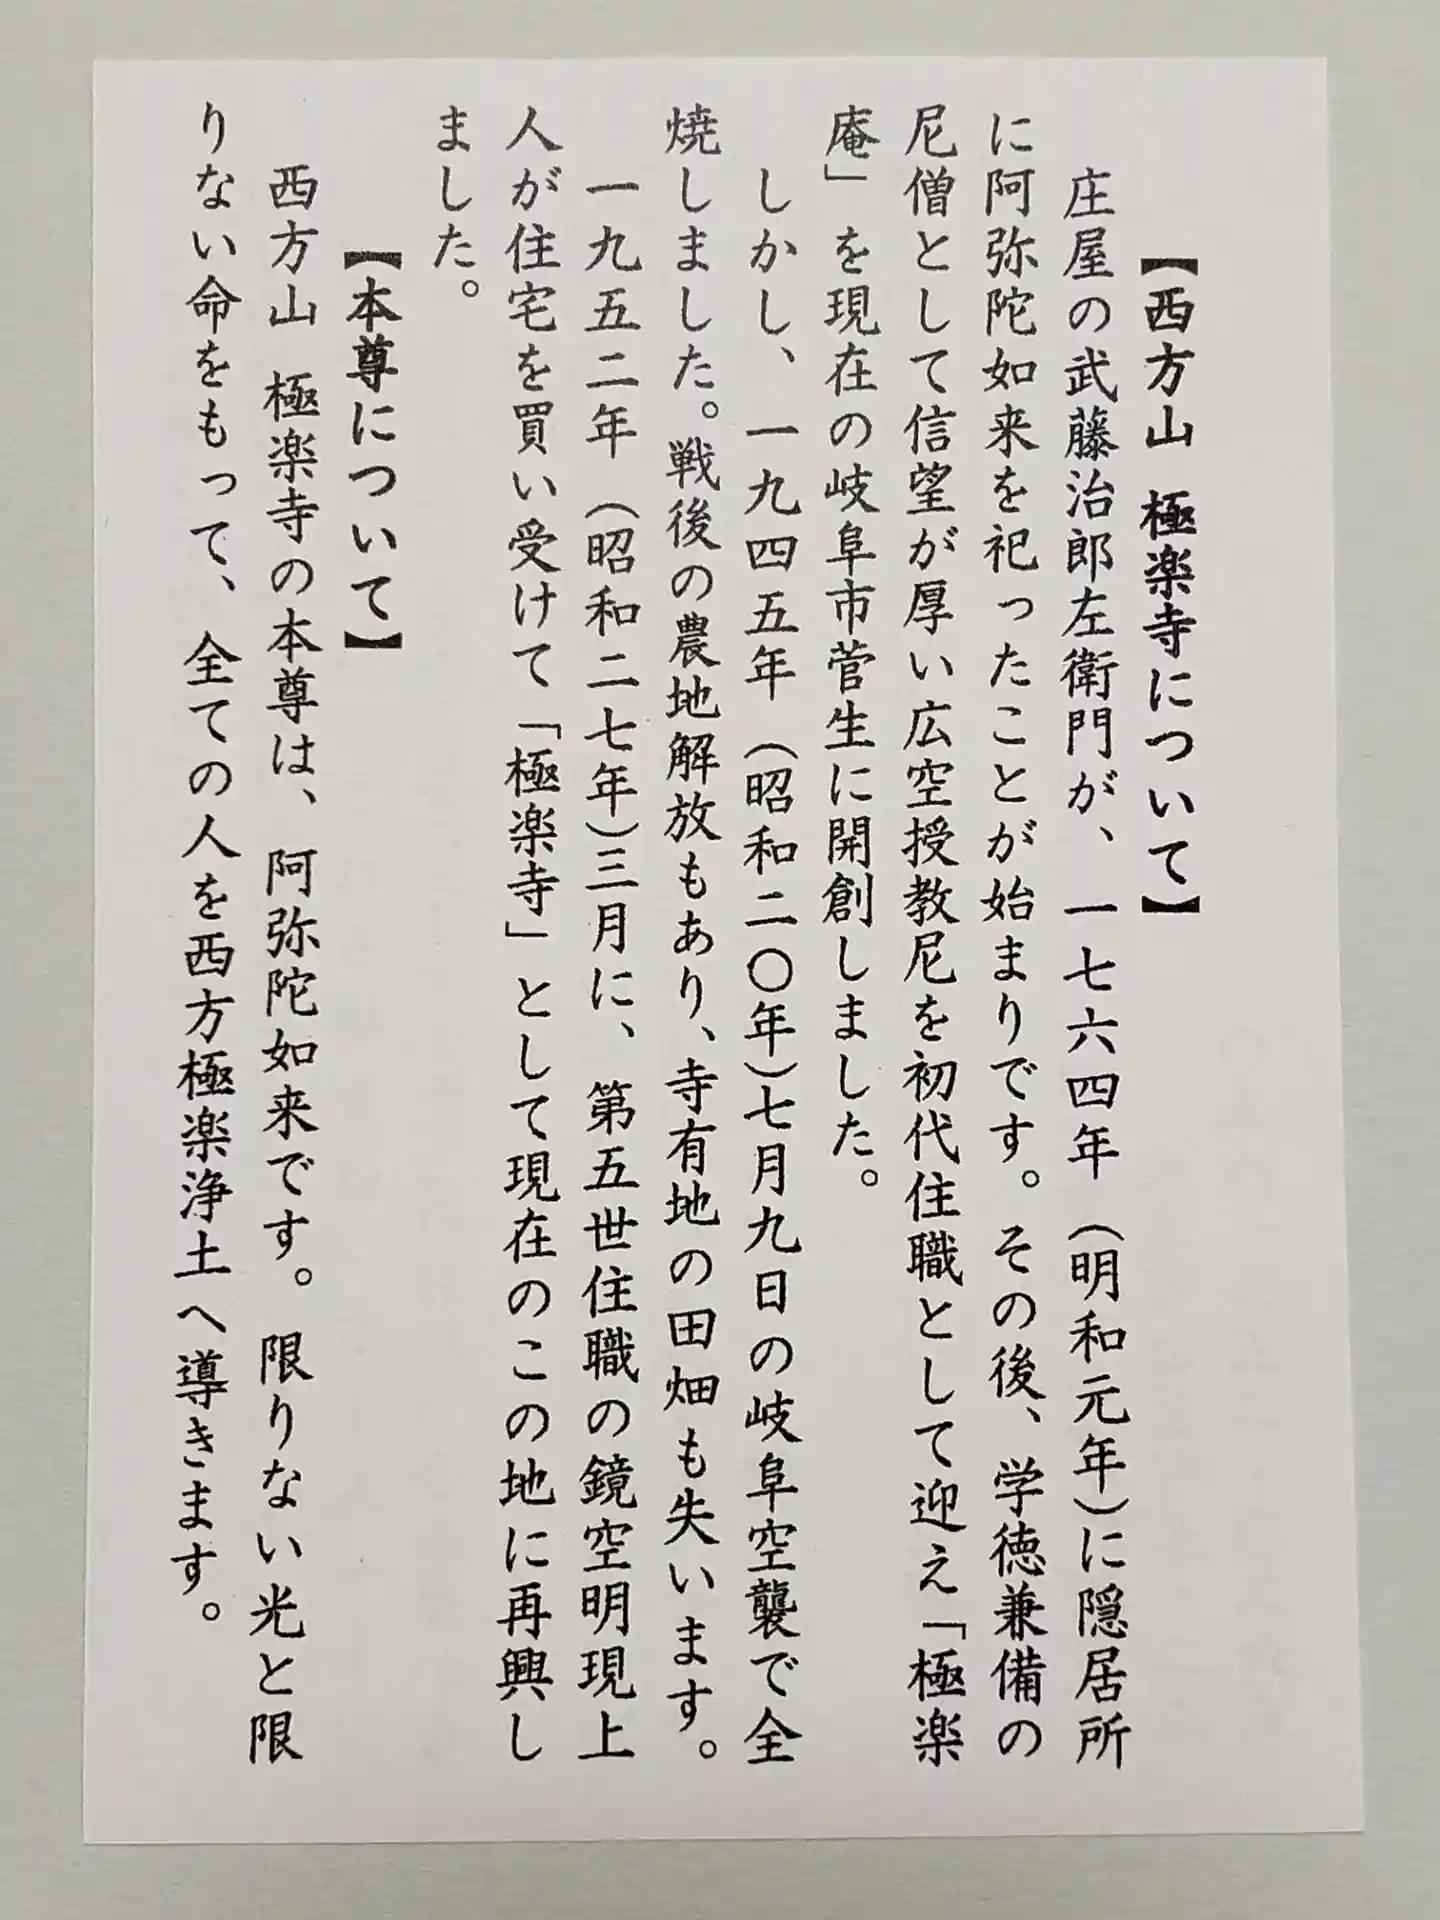 【西方山　極楽寺について】
　庄屋の武藤治郎左衛門が、一七六四年（明和元年）に隠居所
に阿弥陀如来を祀ったことが始まりです。その後、学徳兼備の
尼僧として信望が厚い広空授教尼を初代住職として迎え「極楽
庵」を現在の岐阜市菅生に開創しました。
　しかし、一九四五年（昭和二〇年）七月九日の岐阜空襲で全
焼しました。戦後の農地解放もあり、寺有地の田畑も失います。
　一九五二年（昭和二七年）三月に、第五世住職の鏡空明現上
人が住宅を買い受けて「極楽寺」として現在のこの地に再興し
ました。
【本尊について】
　西方山　極楽寺の本尊は、阿弥陀如来です。限りない光と限
りない命をもって、全ての人を西方極楽浄土へ導きます。